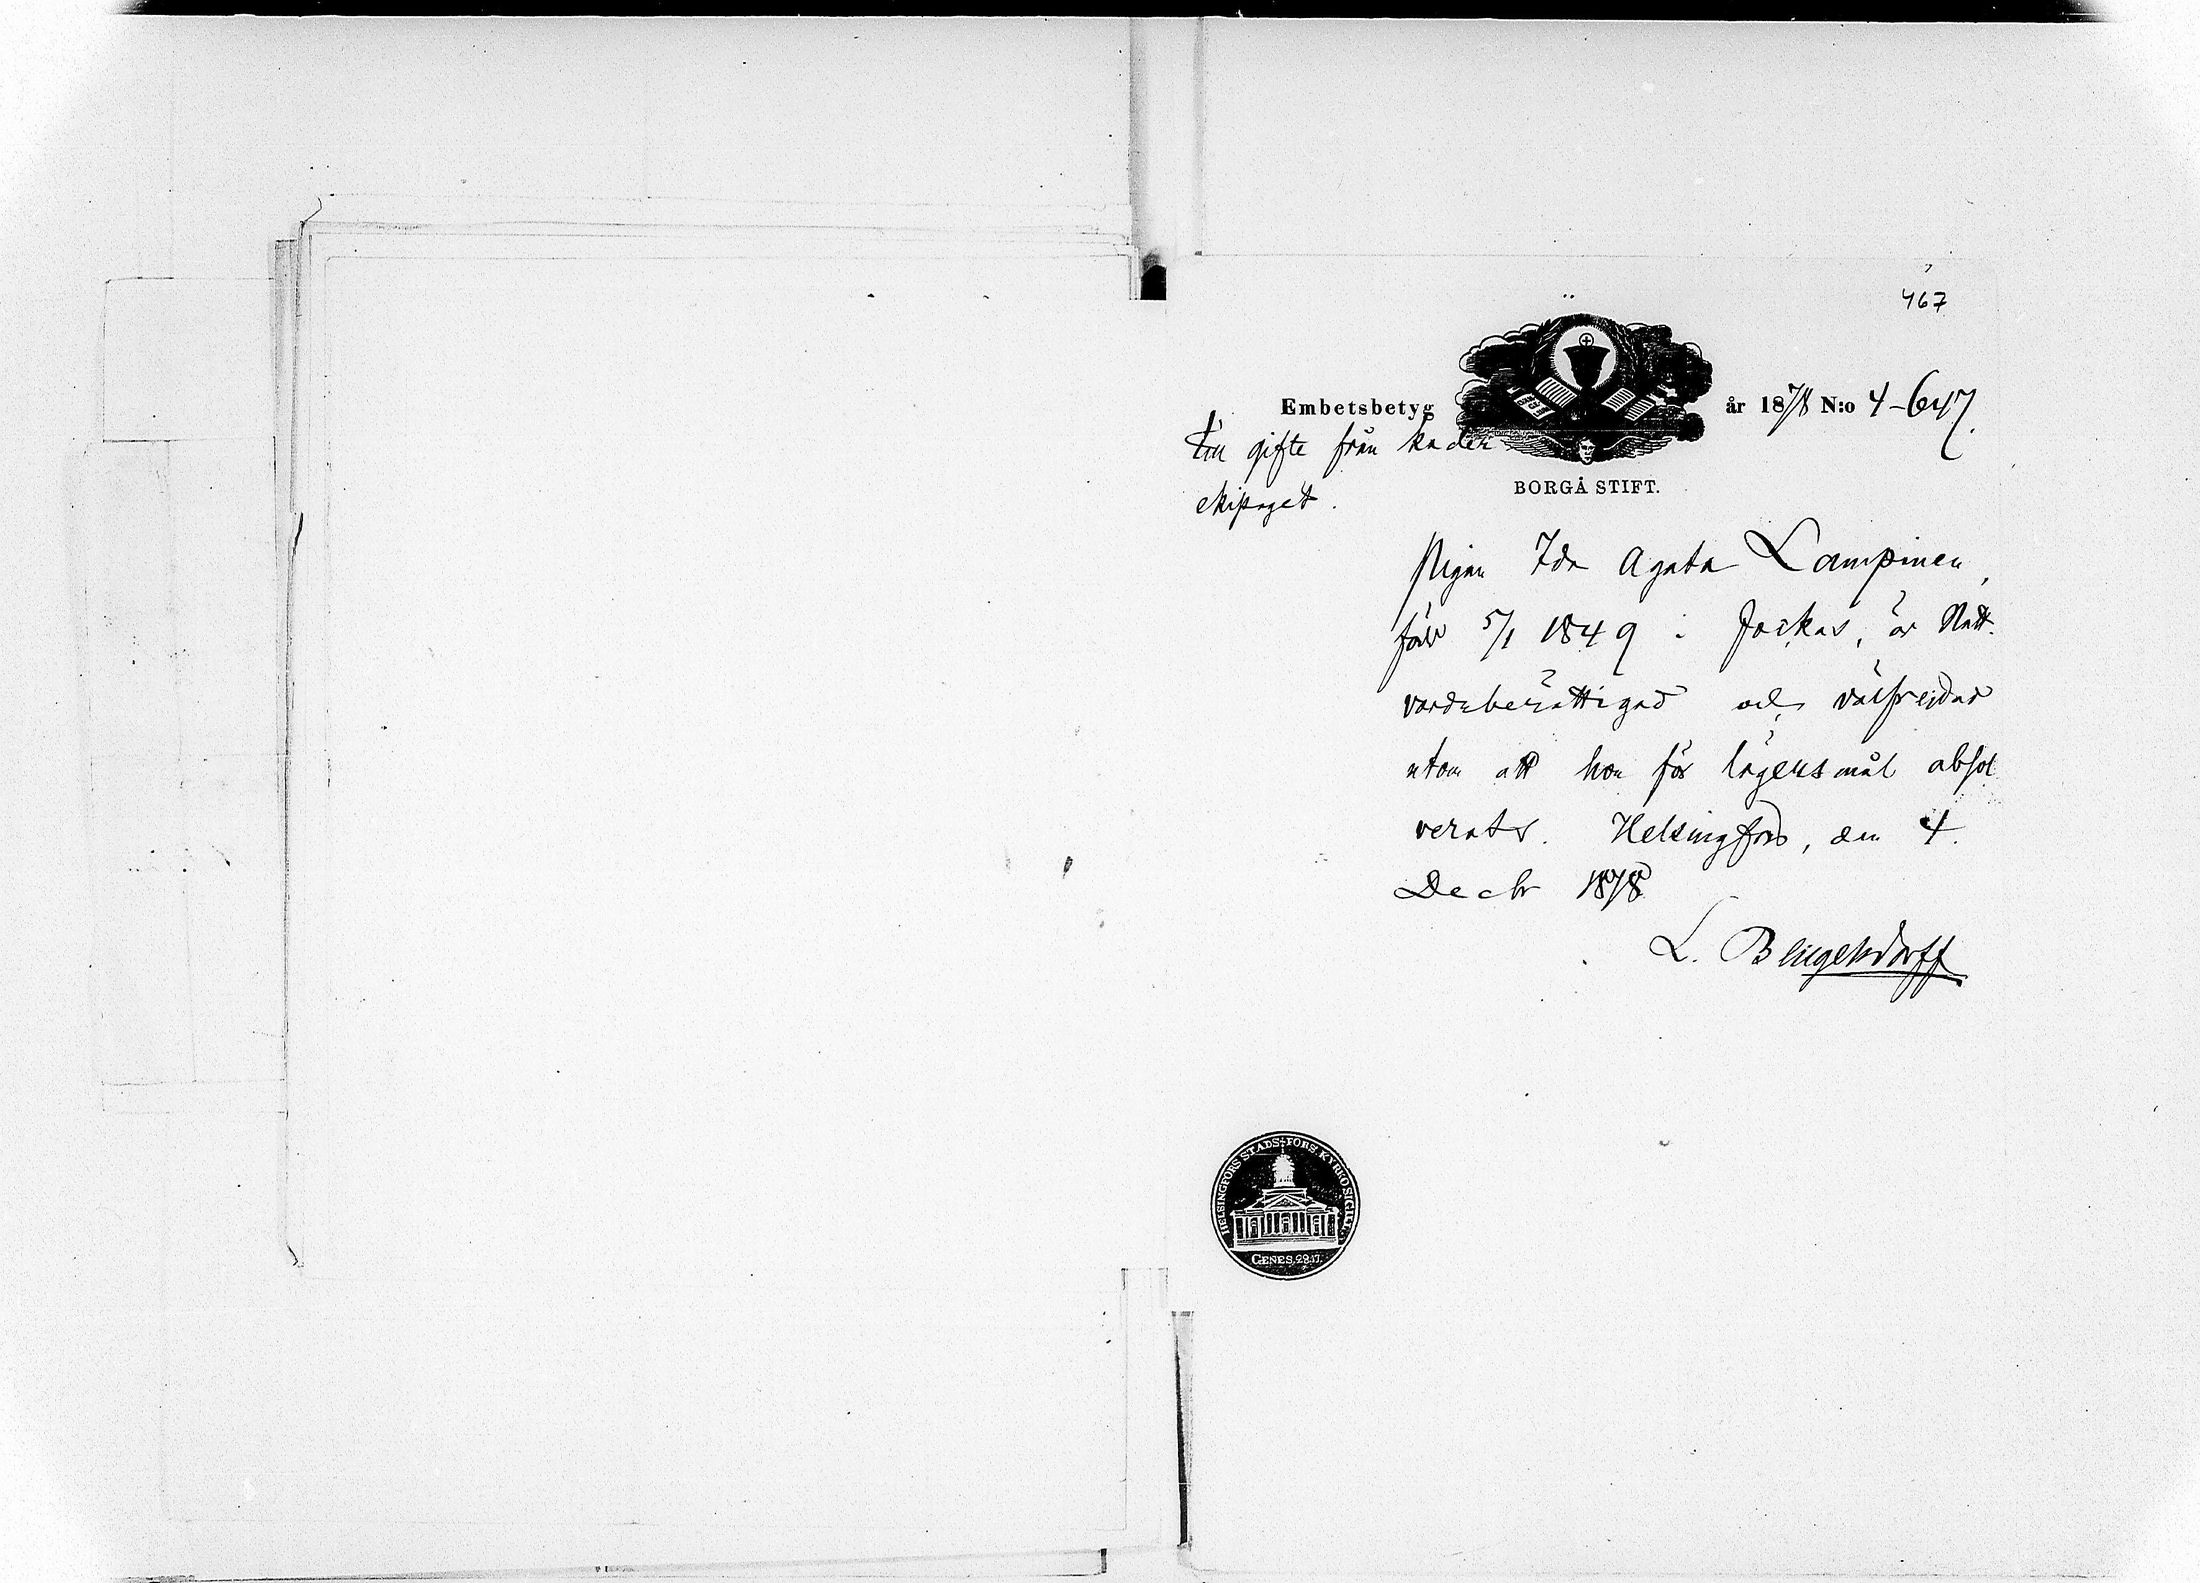 467
Embetsbetyg år 1878 N:o 4-647.
till gifte från kader
ekipaget.
BORGÅ STIFT.
Pigan Ida Agata Lampinen,
född 5/1 1849 i Jockas, är Natt-
vardsberättigad och välfrejdad
utom att hon för lägersmål absol
verats. Helsingfors, den 4.
Decbr 1878
L. Bengelsdorff
HELSINGFORS STADS FÖRS. KYRKO SIGILL.
GENES. 28.17.